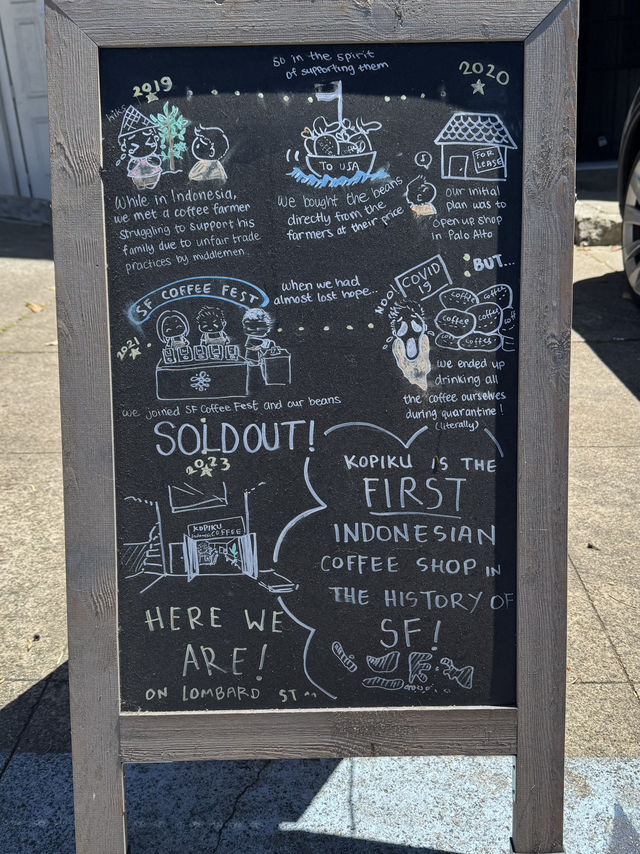 2019
hiks
While in Indonesia,
we met a coffee farmer
struggling to support his
family due to unfair trade
practices by middlemen.
so in the spirit
of supporting them
TO USA
We bought the beans
directly from the
farmers at their price
2020
FOR
LEASE
our initial
plan was to
open up shop
in Palo Alto
BUT...
NOO!
COVID
19
coffee
coffee
coffee
coffee
coffee
we ended up
drinking all
the coffee ourselves
during quarantine!
(literally)
when we had
almost lost hope...
SF COFFEE FEST
2021
we joined SF Coffee Fest and our beans
SOLDOUT!
2023
KOPIKU
Indonesian COFFEE
HERE WE
ARE!
ON LOMBARD ST ^^
KOPIKU IS THE
FIRST
INDONESIAN
COFFEE SHOP IN
THE HISTORY OF
SF!